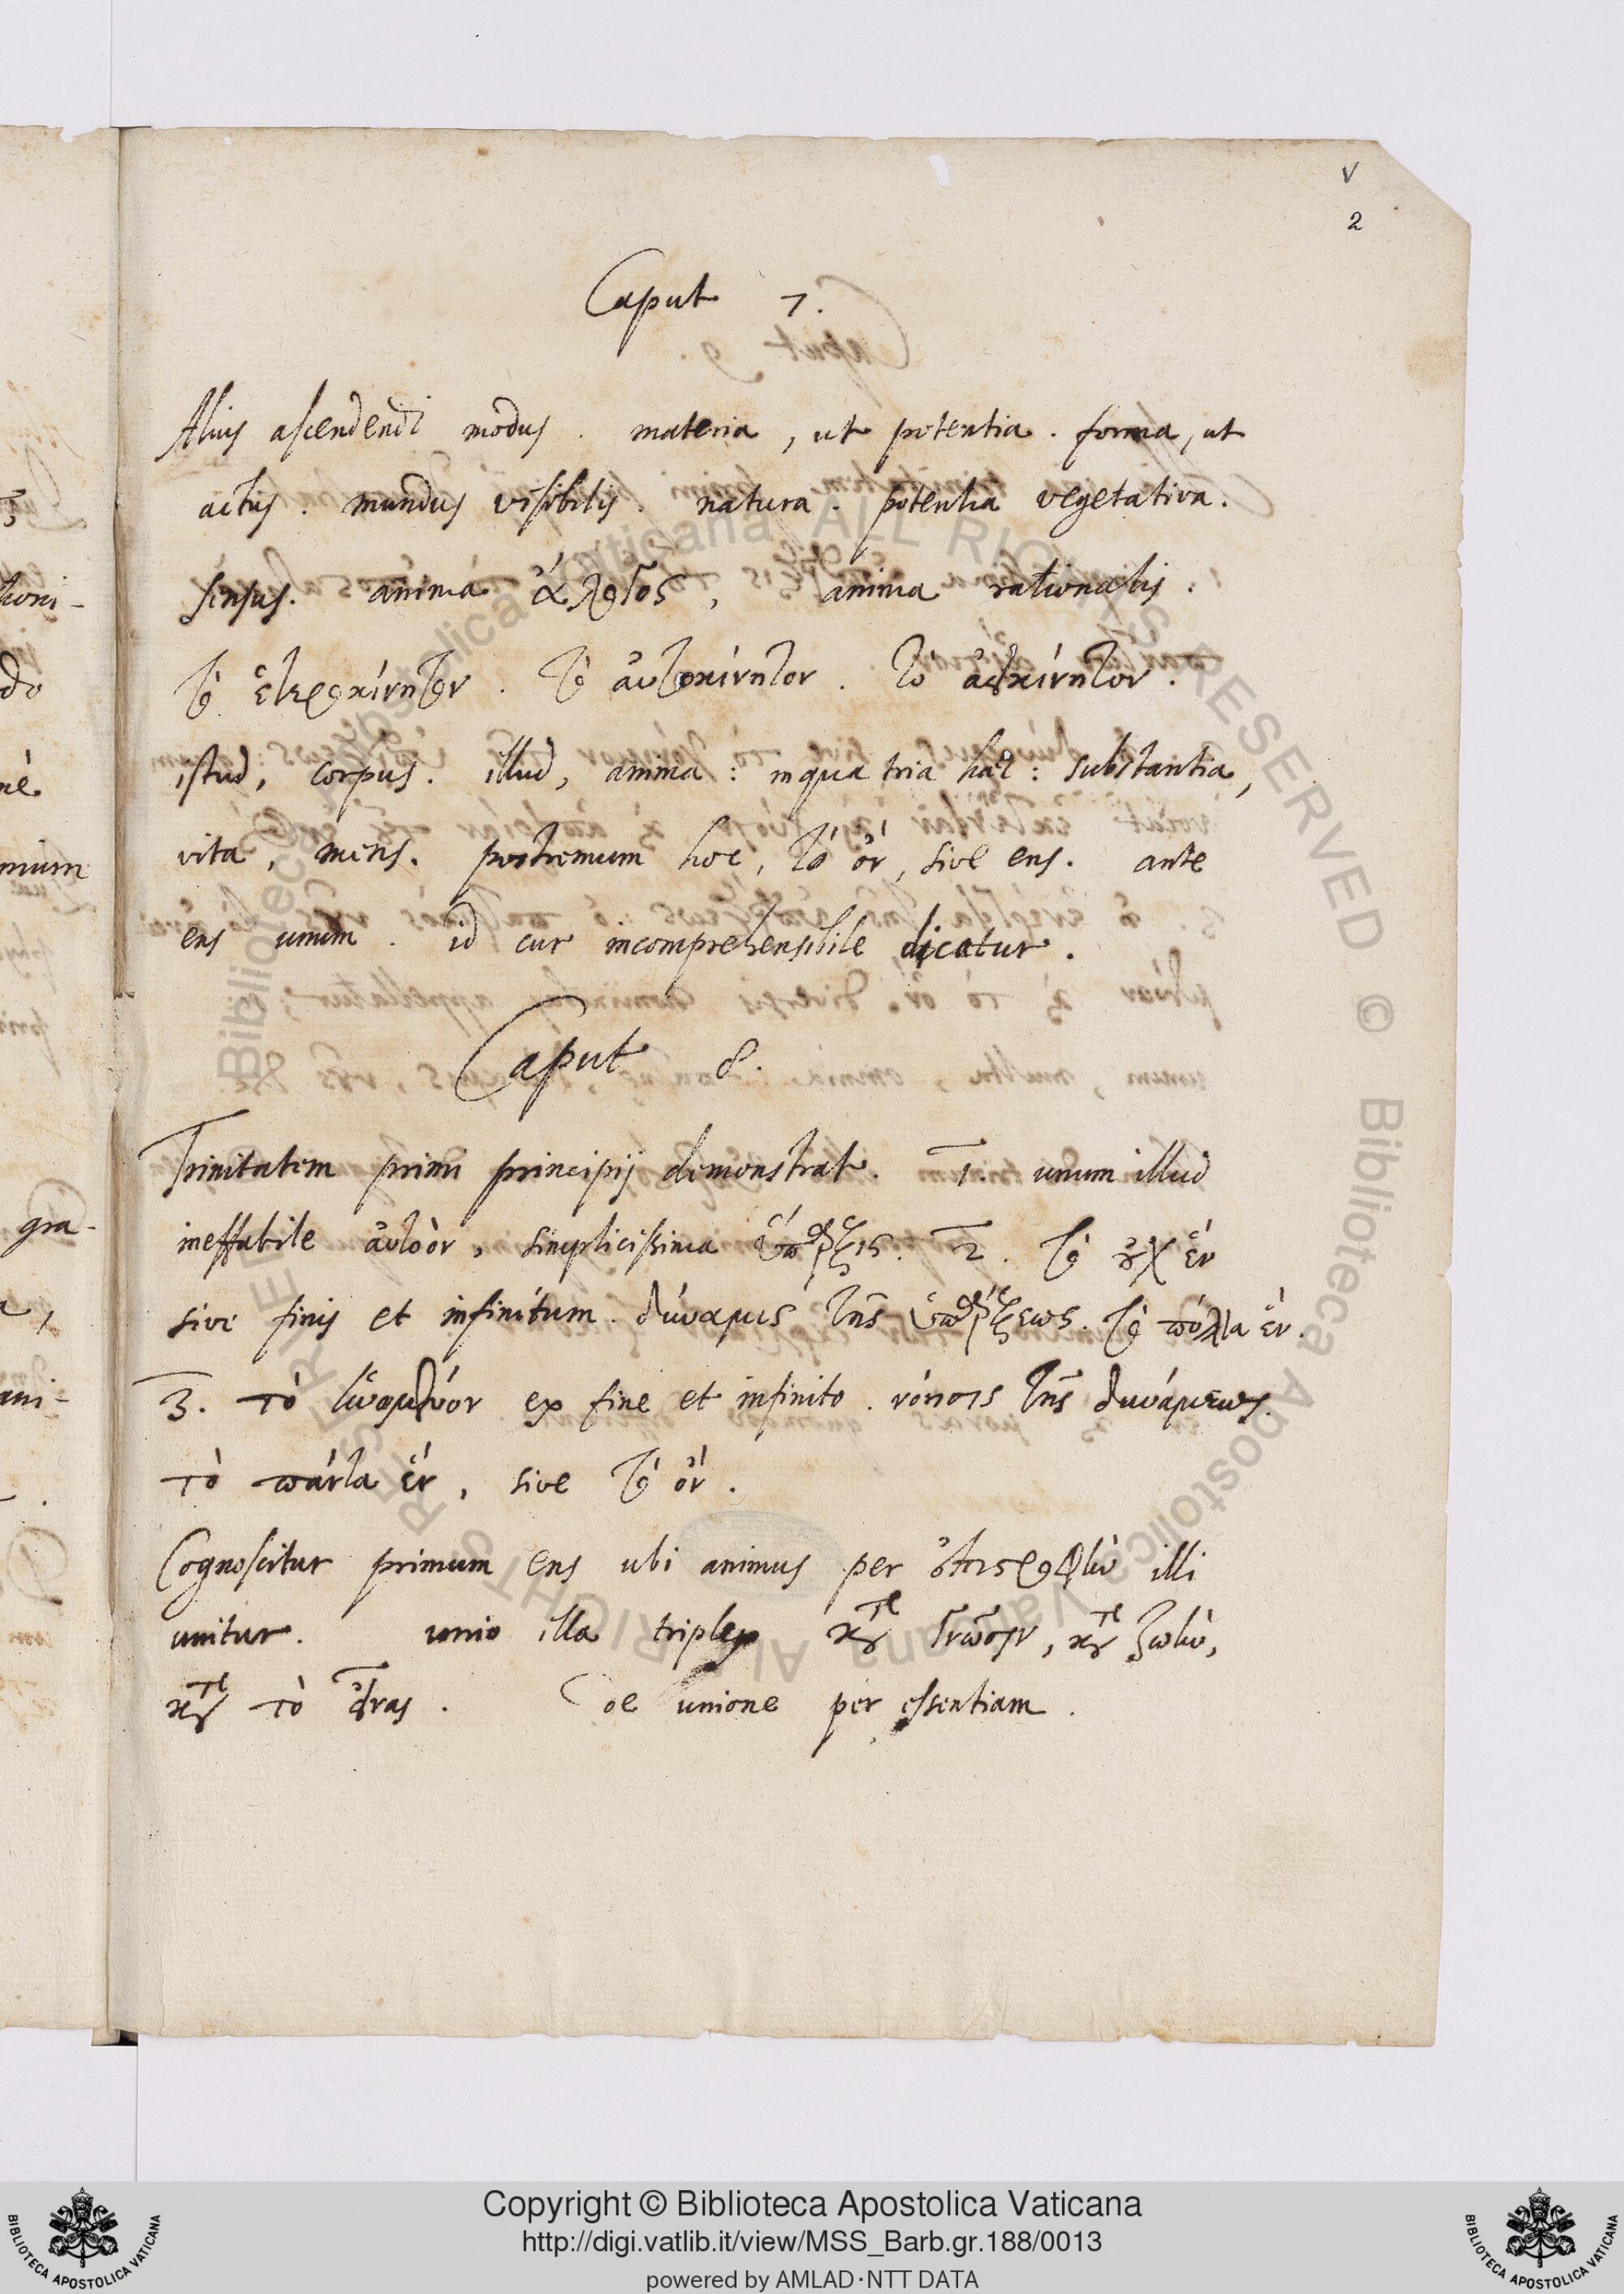 V
2
Caput 7.
Alius ascendendi modus. materia, ut potentia. forma, ut
actus. mundus visibilis. natura. potentia vegetativa.
sensus. anima ἄλογος, anima rationalis.
τὸ ἑτεροκίνητον. τὸ αὐτοκίνητον. τὸ ἀκίνητον.
istud, corpus. illud, anima: in qua tria haec: substantia,
vita, mens. postremum hoc, τὸ ὄν, sive ens. ante
ens unum. id cur incomprehensibile dicatur.
Caput 8.
Trinitatem primi principij demonstrat. 1. unum illud
ineffabile αὐτοὸν, simplicissima ὕπαρξις. 2. τὸ οὐχ ἓν
sive finis et infinitum. δύναμις τῆς ὑπάρξεως. τὸ πόλλα ἕν.
3. τὸ ἡνωμένον ex fine et infinito. νόησις τῆς δυνάμεως.
τὸ πάντα ἕν, sive τὸ ὄν.
Cognoscitur primum ens ubi animus per ἐπιστροφὴν illi
unitur. unio illa triplex κατὰ γνῶσιν, κατὰ ζωὴν,
κατὰ τὸ εἶναι. De unione per essentiam.
Copyright © Biblioteca Apostolica Vaticana
http://digi.vatlib.it/view/MSS_Barb.gr.188/0013
powered by AMLAD·NTT DATA
BIBLIOTECA APOSTOLICA VATICANA
BIBLIOTECA APOSTOLICA VATICANA
Biblioteca Apostolica Vaticana ALL RIGHTS RESERVED ©